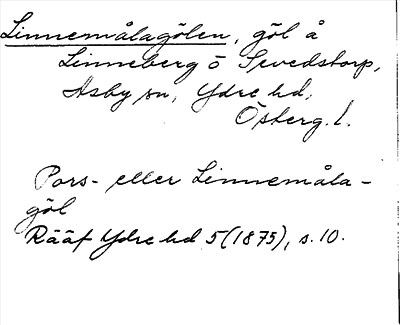 Linnemålagölen, göl å
Linneberg ö Svedstorp,
Asby sn, Ydre hd,
Österg. l.
Pors- eller Linnemåla-
göl
Rääf Ydre hd 5 (1875), s. 10.